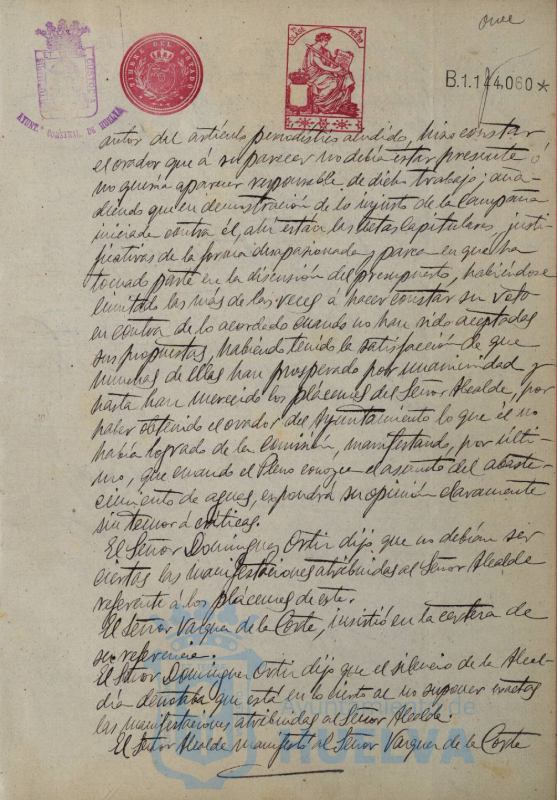 once
AYUNT. CONSTNAL. DE HUELVA
TIMBRE DEL ESTADO
CLASE 8ª
B.1.144.060*
autor del artículo periodístico aludido, hizo constar
el orador que á su parecer no debía estar presente ó
no quería aparecer responsable de dicho trabajo; aña-
diendo que en demostración de lo injusto de la campaña
iniciada contra él, ahí están las actas Capitulares, justi-
ficativas de la forma desapasionada y parca en que ha
tomado parte en la discusión del presupuesto, habiéndose
limitado las más de las veces á hacer constar su voto
en contra de lo acordado cuando no han sido aceptadas
sus propuestas, habiendo tenido la satisfacción de que
muchas de ellas han prosperado por unanimidad y
hasta han merecido los plácemes del Señor Alcalde, por
haber obtenido el orador del Ayuntamiento lo que él no
había logrado de la Comisión, manifestando, por últi-
mo, que cuando el Pleno conozca el asunto del abaste-
cimiento de aguas, expondrá su opinión claramente
sin temor á críticas.
El Señor Domínguez Ortiz dijo que no debían ser
ciertas las manifestaciones atribuidas al Señor Alcalde
referente á los plácemes de este.
El Señor Vázquez de la Corte, insistió en la certeza de
su referencia.
El Señor Domínguez Ortiz dijo que el silencio de la Alcal-
día denotaba que está en lo cierto al no suponer exactas
las manifestaciones atribuidas al Señor Alcalde.
El Señor Alcalde manifestó al Señor Vázquez de la Corte
Ayuntamiento de
HUELVA